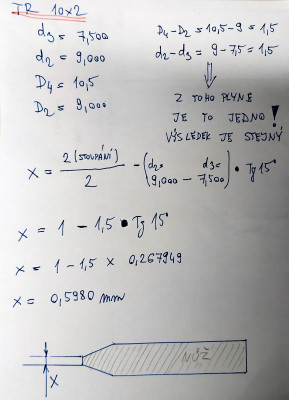 TR 10x2
d3 = 7,500
d2 = 9,000
D4 = 10,5
D2 = 9,000
D4-D2 = 10,5-9 = 1,5
d2-d3 = 9-7,5 = 1,5
Z TOHO PLYNE
JE TO JEDNO!
VÝSLEDEK JE STEJNÝ
x = 2(STOUPÁNÍ)/2 - (d2= 9,000 - d3= 7,500) • Tg 15°
x = 1 - 1,5 • Tg 15°
x = 1 - 1,5 x 0,267949
x = 0,5980 mm
NŮŽ
x